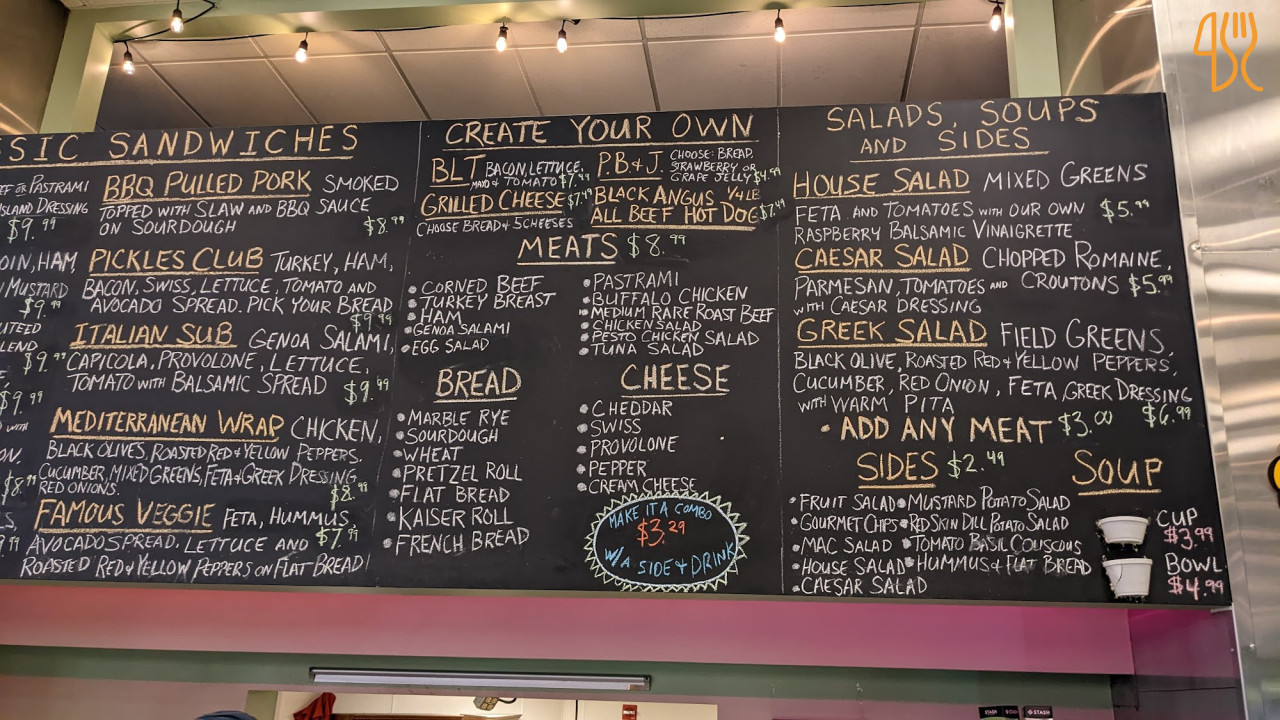 SIC SANDWICHES
PASTRAMI
ISLAND DRESSING
$9.99
OIN, HAM,
MUSTARD
$9.99
LEND
$9.99
$9.99
WITH
ON,
$8.99
BBQ PULLED PORK SMOKED
TOPPED WITH SLAW AND BBQ SAUCE
ON SOURDOUGH $8.99
PICKLES CLUB TURKEY, HAM,
BACON, SWISS, LETTUCE, TOMATO AND
AVOCADO SPREAD. PICK YOUR BREAD
$9.99
ITALIAN SUB GENOA SALAMI,
CAPICOLA, PROVOLONE, LETTUCE,
TOMATO WITH BALSAMIC SPREAD $9.99
MEDITERRANEAN WRAP CHICKEN,
BLACK OLIVES, ROASTED RED & YELLOW PEPPERS.
CUCUMBER, MIXED GREENS, FETA & GREEK DRESSING
RED ONIONS. $8.99
FAMOUS VEGGIE FETA, HUMMUS
AVOCADO SPREAD, LETTUCE AND $7.99
ROASTED RED & YELLOW PEPPERS ON FLAT BREAD
CREATE YOUR OWN
BLT BACON, LETTUCE,
MAYO & TOMATO $7.49
GRILLED CHEESE $7.49
CHOOSE BREAD & 5 CHEESES
P.B. & J. CHOOSE: BREAD.
STRAWBERRY OR
GRAPE JELLY $4.99
BLACK ANGUS 1/4 LB
ALL BEEF HOT DOG $7.49
MEATS $8.99
• CORNED BEEF
• TURKEY BREAST
• HAM
• GENOA SALAMI
• EGG SALAD
• PASTRAMI
• BUFFALO CHICKEN
• MEDIUM RARE ROAST BEEF
• CHICKEN SALAD
• PESTO CHICKEN SALAD
• TUNA SALAD
BREAD
• MARBLE RYE
• SOURDOUGH
• WHEAT
• PRETZEL ROLL
• FLAT BREAD
• KAISER ROLL
• FRENCH BREAD
CHEESE
• CHEDDAR
• SWISS
• PROVOLONE
• PEPPER
• CREAM CHEESE
MAKE IT A COMBO
$3.29
W/A SIDE & DRINK
SALADS, SOUPS
AND SIDES
HOUSE SALAD MIXED GREENS
FETA AND TOMATOES WITH OUR OWN $5.99
RASPBERRY BALSAMIC VINAIGRETTE
CAESAR SALAD CHOPPED ROMAINE,
PARMESAN, TOMATOES AND CROUTONS $5.99
WITH CAESAR DRESSING
GREEK SALAD FIELD GREENS,
BLACK OLIVE, ROASTED RED & YELLOW PEPPERS,
CUCUMBER, RED ONION, FETA, GREEK DRESSING
WITH WARM PITA $6.99
• ADD ANY MEAT $3.00
SIDES $2.49
• FRUIT SALAD • MUSTARD POTATO SALAD
• GOURMET CHIPS • RED SKIN DILL POTATO SALAD
• MAC SALAD • TOMATO BASIL COUSCOUS
• HOUSE SALAD • HUMMUS & FLAT BREAD
• CAESAR SALAD
SOUP
CUP
$3.99
BOWL
$4.99
STASH
STASH